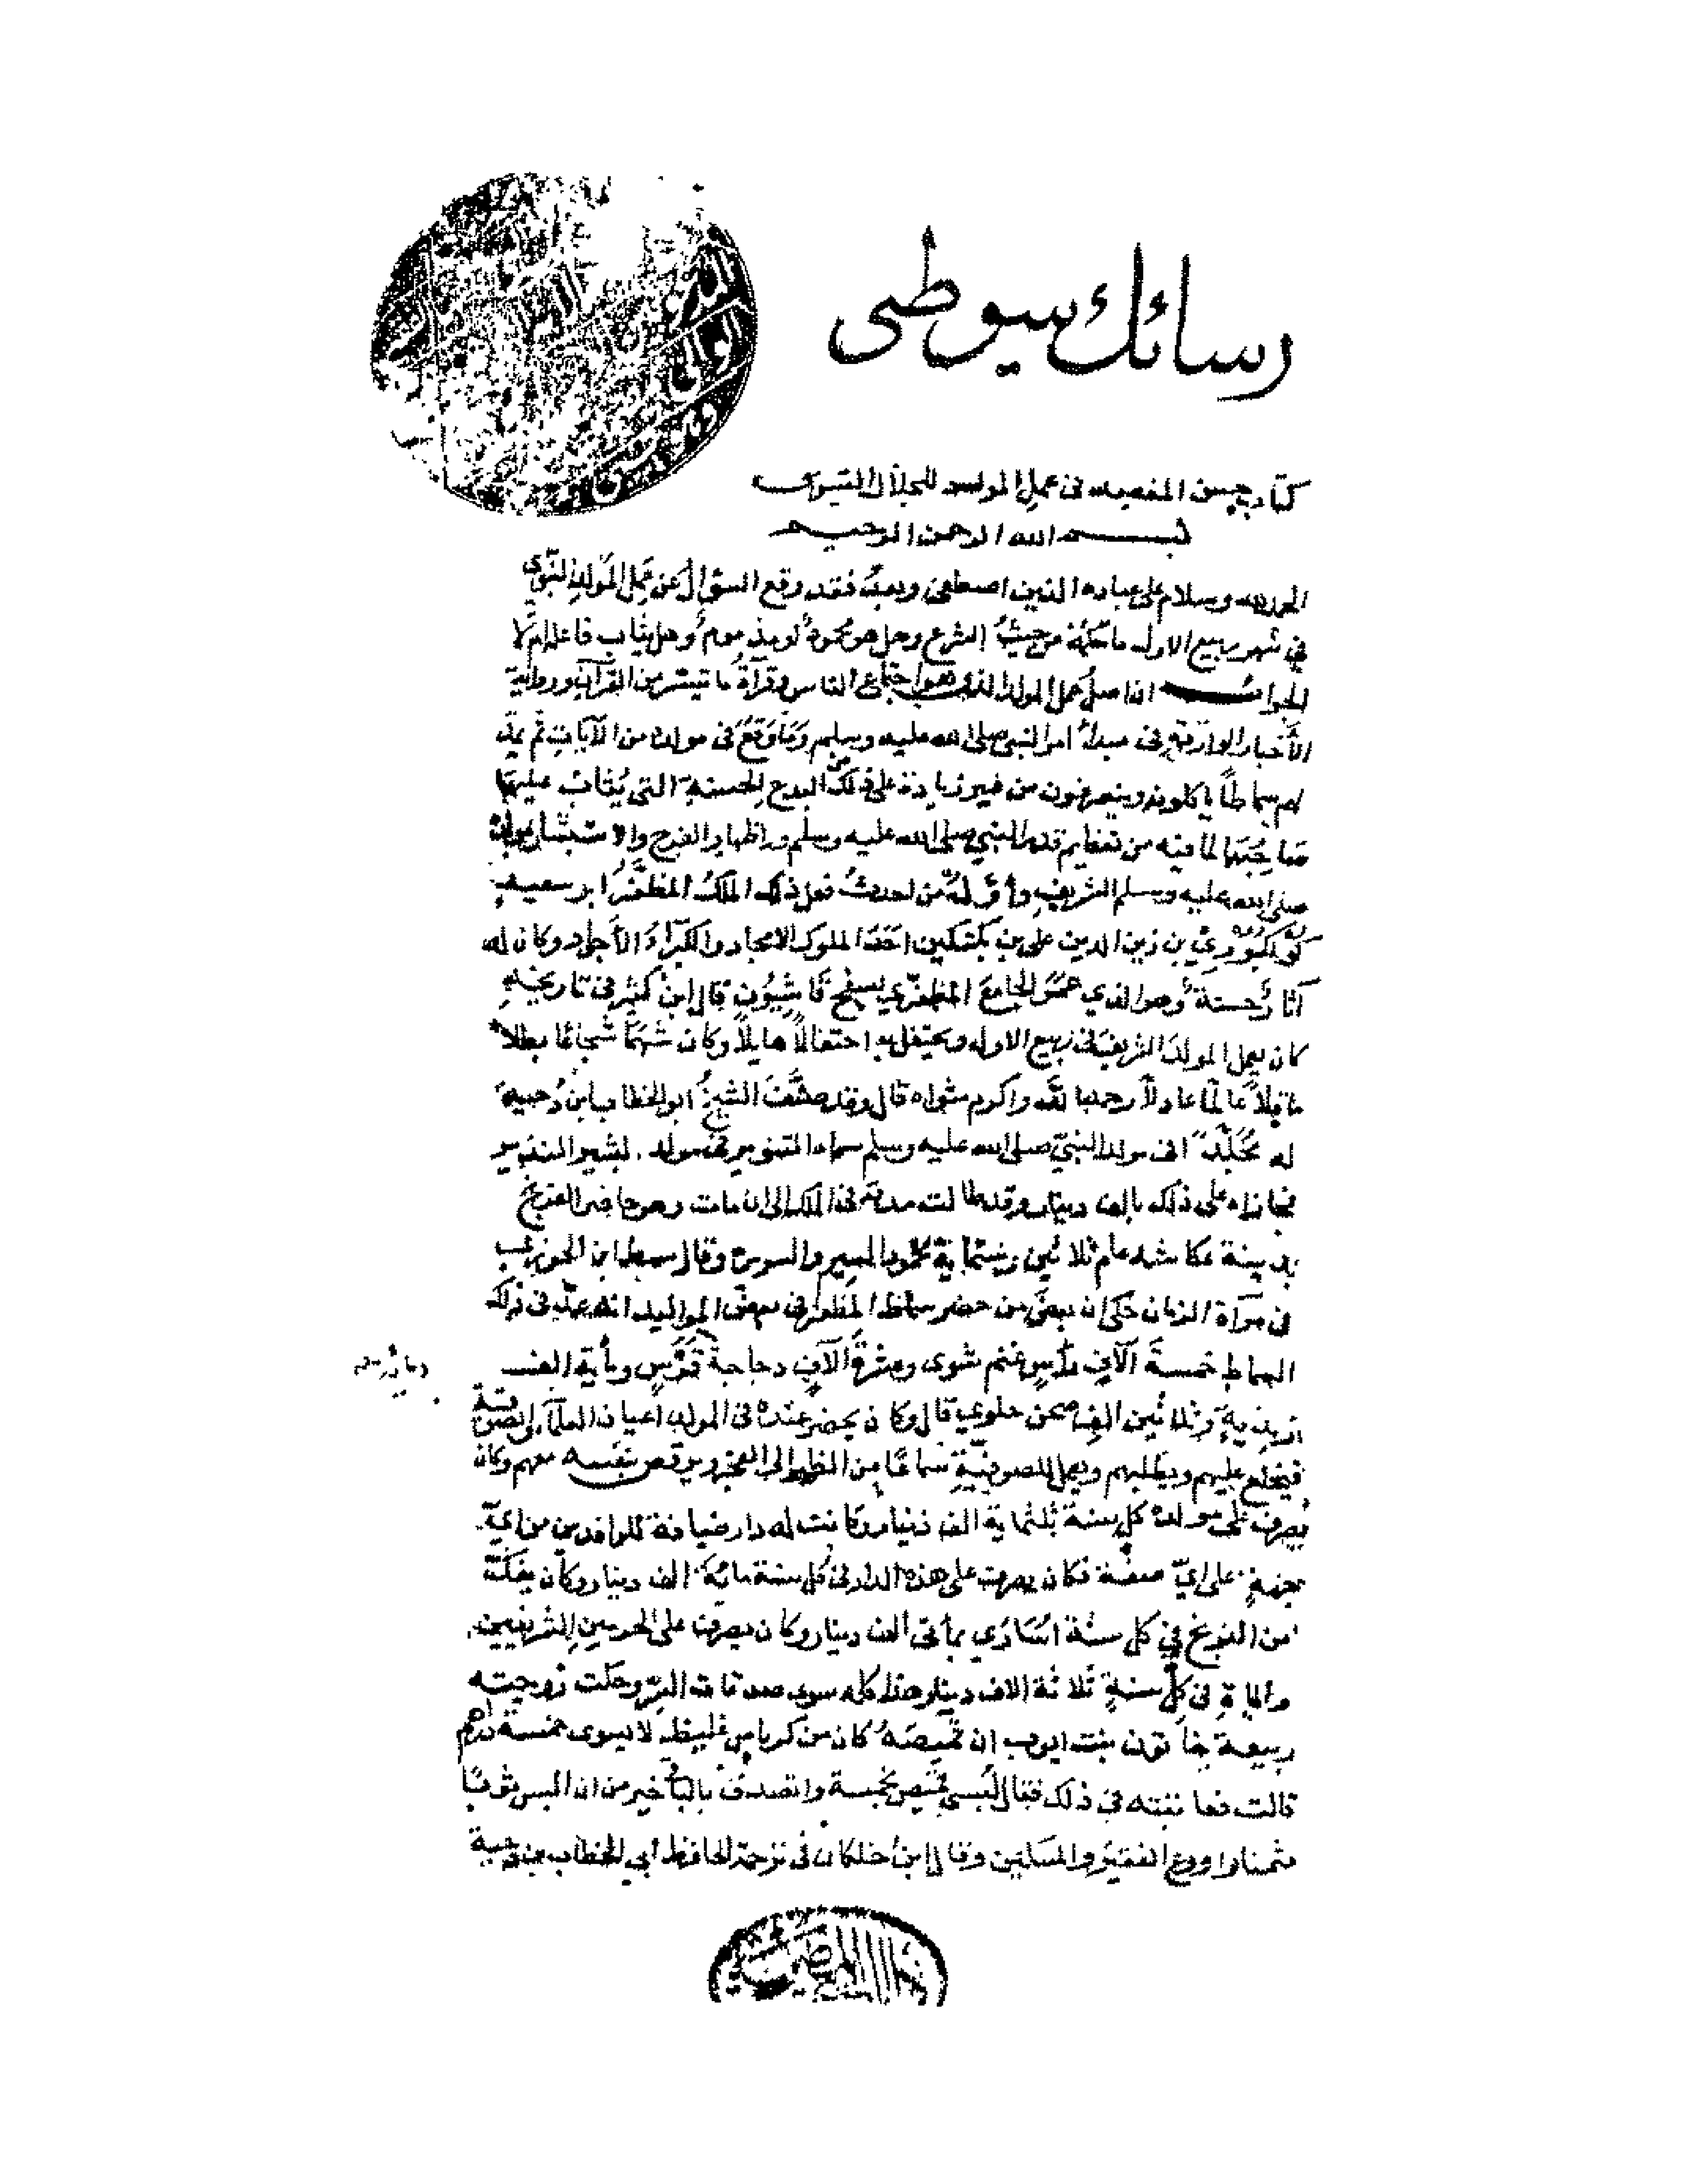 رسائل سيوطى
كتاب حسن المقصد فى عمل المولد للجلال السيوطى
بسم الله الرحمن الرحيم
الحمد لله وسلام على عباده الذين اصطفى وبعدُ فقد وقع السؤال عن عَمَلِ المَولدِ النبَّوي
في شهر ربيع الاول ما حُكمُهُ من حيثُ الشرع وهل هو محمودٌ او مذمومٌ وهل يثاب فاعله ام لا
الجوابُ ان اصلُ عمل المولد الذى هو اجتماع الناس وقرآةُ ما تيسّر من القرآن ورواية
الأخبار الواردة فى مبدأ امر النبى صلى الله عليه وسلم وَمَا وَقَعَ فى مولده من الآيات ثم يمدّ
لهم سماطاً ياكلونه وينصرفون من غير زيادة على ذلك من البدع الحسنة التى يُثابُ عليها
صاحِبُها لما فيه من تعظيم قدر النبي صلى الله عليه وسلم واظهار الفرح والاستبشار بمولده
صلى الله عليه وسلم الشريف وأوّلُ من احدثُ فعل ذلك الملكُ المظفَّرُ ابو سعيد
كُوكُبُورِيّ بن زين الدين على بن بكتكين احَدُ الملوك الامجاد والكُبَرَاءَ الأجواد وكان له
آثارٌ حسنةٌ وهو الذي عمّرَ الجامعَ المظفّري بسفح قاسِيُون قال ابنُ كثير فى تاريخه
كان يعمل المولد الشريف فى ربيع الاول ويحتفل به احتفالاً هايلاً وكان شَهْمًا شجاعًا بطلاً
عاقلاً عالمًا عادلاً رحمه الله واكرم مثواه قال وقد صنَّفَ الشيخُ ابو الخطاب ابنُ دُحيه
له مُجَلّدً فى مولد النبيّ صلى الله عليه وسلم سماه التنوير فى مولد البشير النذير
فجازاه على ذلك بالف دينار وقد طالت مدته فى الملك الى ان مات وهو محاصر الفرنج
بمدينة عكا سنه عام ثلاثين وستماية محمود السيرة والسريرة وقال سبط ابن الجوزى
فى مرآة الزمان حكى ان بعض من حضر سماط المظفر فى بعض المواليد انه عدّ فى ذلك
السماط خمسةَ آلاف رأس غنم شوى وعشرةُ آلاف دجاجة وماية فَرَسٍ ومأية الف
زبديةٍ وثلاثين الف صحن حلوى قال وكان يحضر عنده فى المولد اعيان العلمآء والصوفية
فيخلع عليهم ويطلبهم ويعمل للصوفيّةِ سماعًا من الظهر الى الفجر ويرقص بنفسه معهم وكان
يصرف على مولده كل سنة ثلثماية الف دينار وكانت له دار ضيافة للوافدين من ايّ
جهةٍ على ايّ صفة فكان يصرف على هذه الدار فى كل سنة مائة الف دينار وكان يفكّ
من الفرنج في كل سنة اسَارَي بمأتى ألف دينار وكان يصرف على الحرمين الشريفين
والمياه فى كل سنة ثلاثة الاف دينار هذا كله سوى صدقات السرّ وحكت زوجته
ربيعة خاتون بنت ايوب ان قميصَهُ كان من كرباس غليظ لا يسوى خمسة دراهم
قالت فعاتبته فى ذلك فقال لُبسى قميص بخمسة واتصدق بالباقى خير من ان البس ثوبًا
مثمنا وادع الفقير والمسكين وقال ابن خلكان فى ترجمة الحافظ أبي الخطاب بن دحية